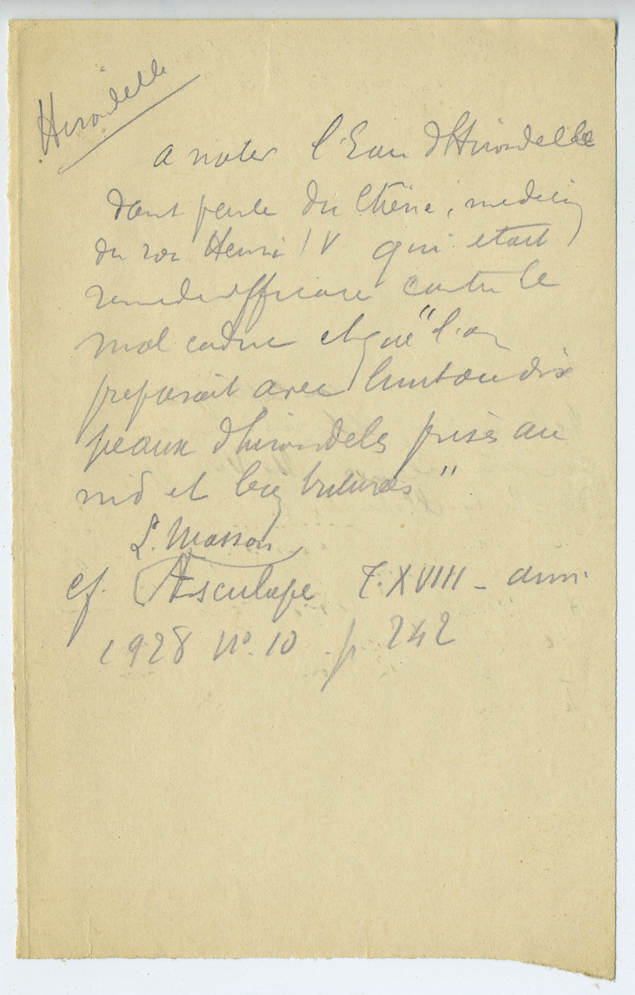 Hirondelle
a noter l'Eau d'Hirondelle
dont parle du Chêne, medecin
du roi Henri IV qui etait
remede efficace contre le
mal caduc et que "l'on
preparait avec huit ou dix
peaux d'hirondeles prises au
nid et bien
L. Masson
cf. Aesculape T. XVIII - ann.
1928 n° 10 p 242